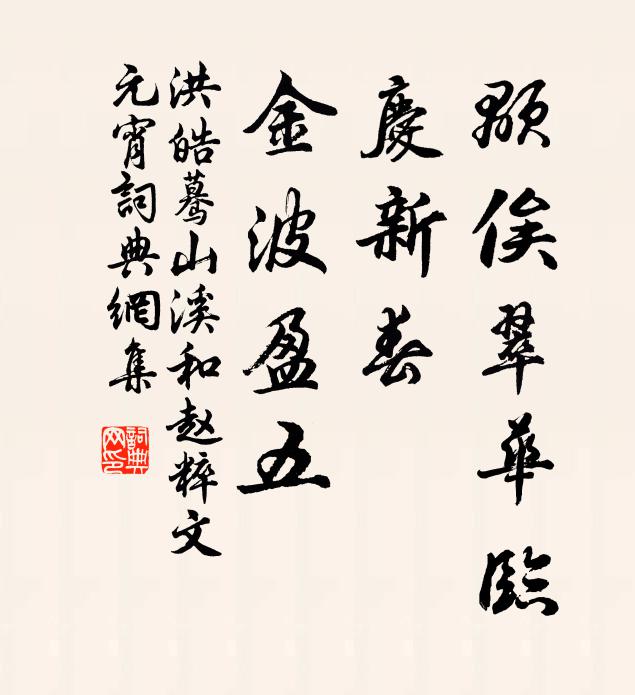 顒俟翠華臨
慶新春
金波盈五
洪皓驀山溪和赵粹文
元宵詞典網集
詞典网印